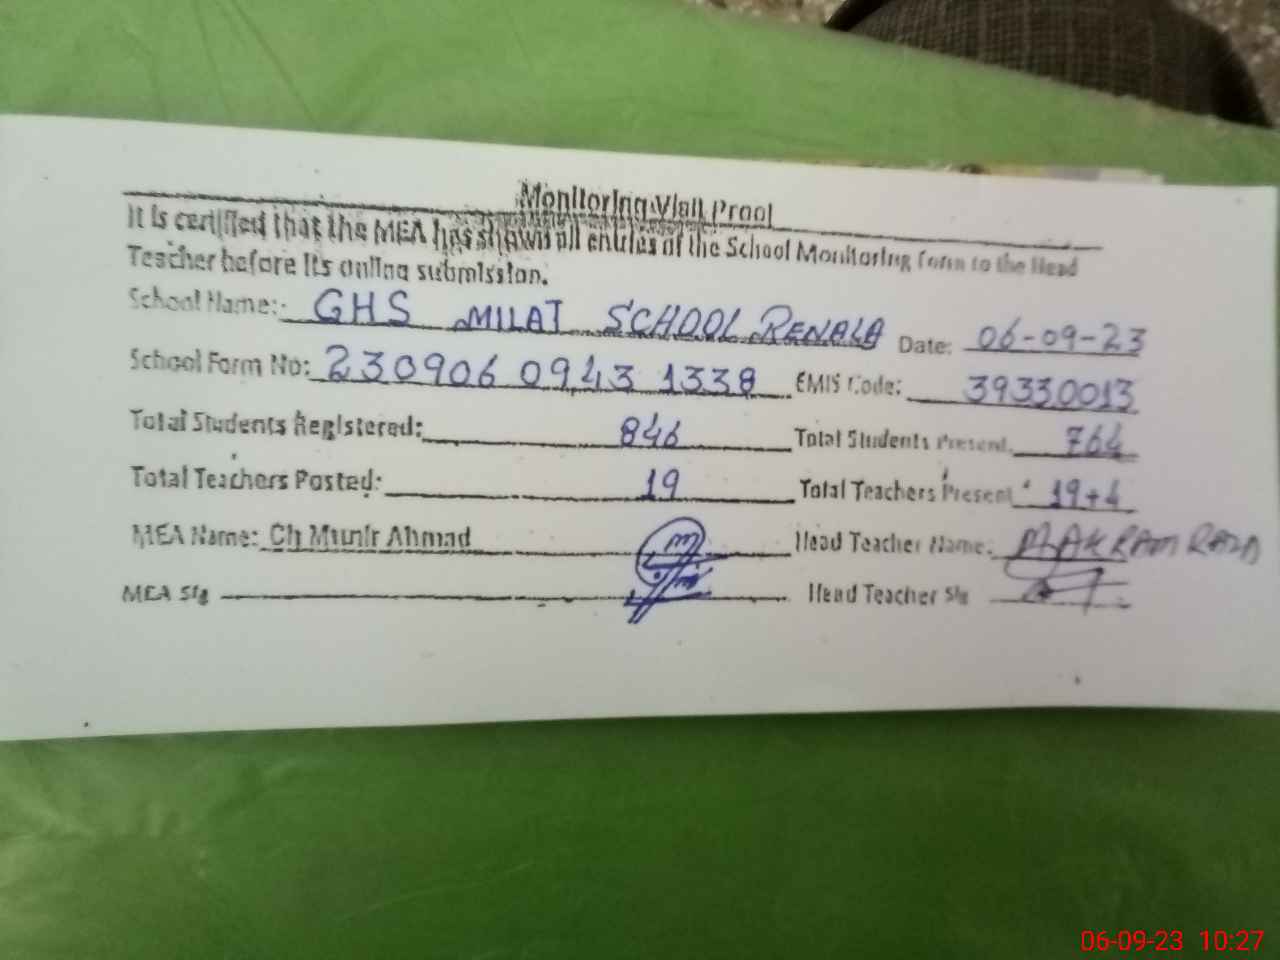 Monitoring Visit Proof
It is certified that the MEA has shown all entries of the School Monitoring form to the Head
Teacher before its online submission.
School Name:- GHS MILAT SCHOOL RENALA Date: 06-09-23
School Form No: 230906 0943 1338 EMIS Code: 39330013
Total Students Registered: 846 Total Students Present 764
Total Teachers Posted: 19 Total Teachers Present 19+4
MEA Name: Ch Munir Ahmad Head Teacher Name: M AKRAM RAZA
MEA Sig Head Teacher Sig
06-09-23 10:27